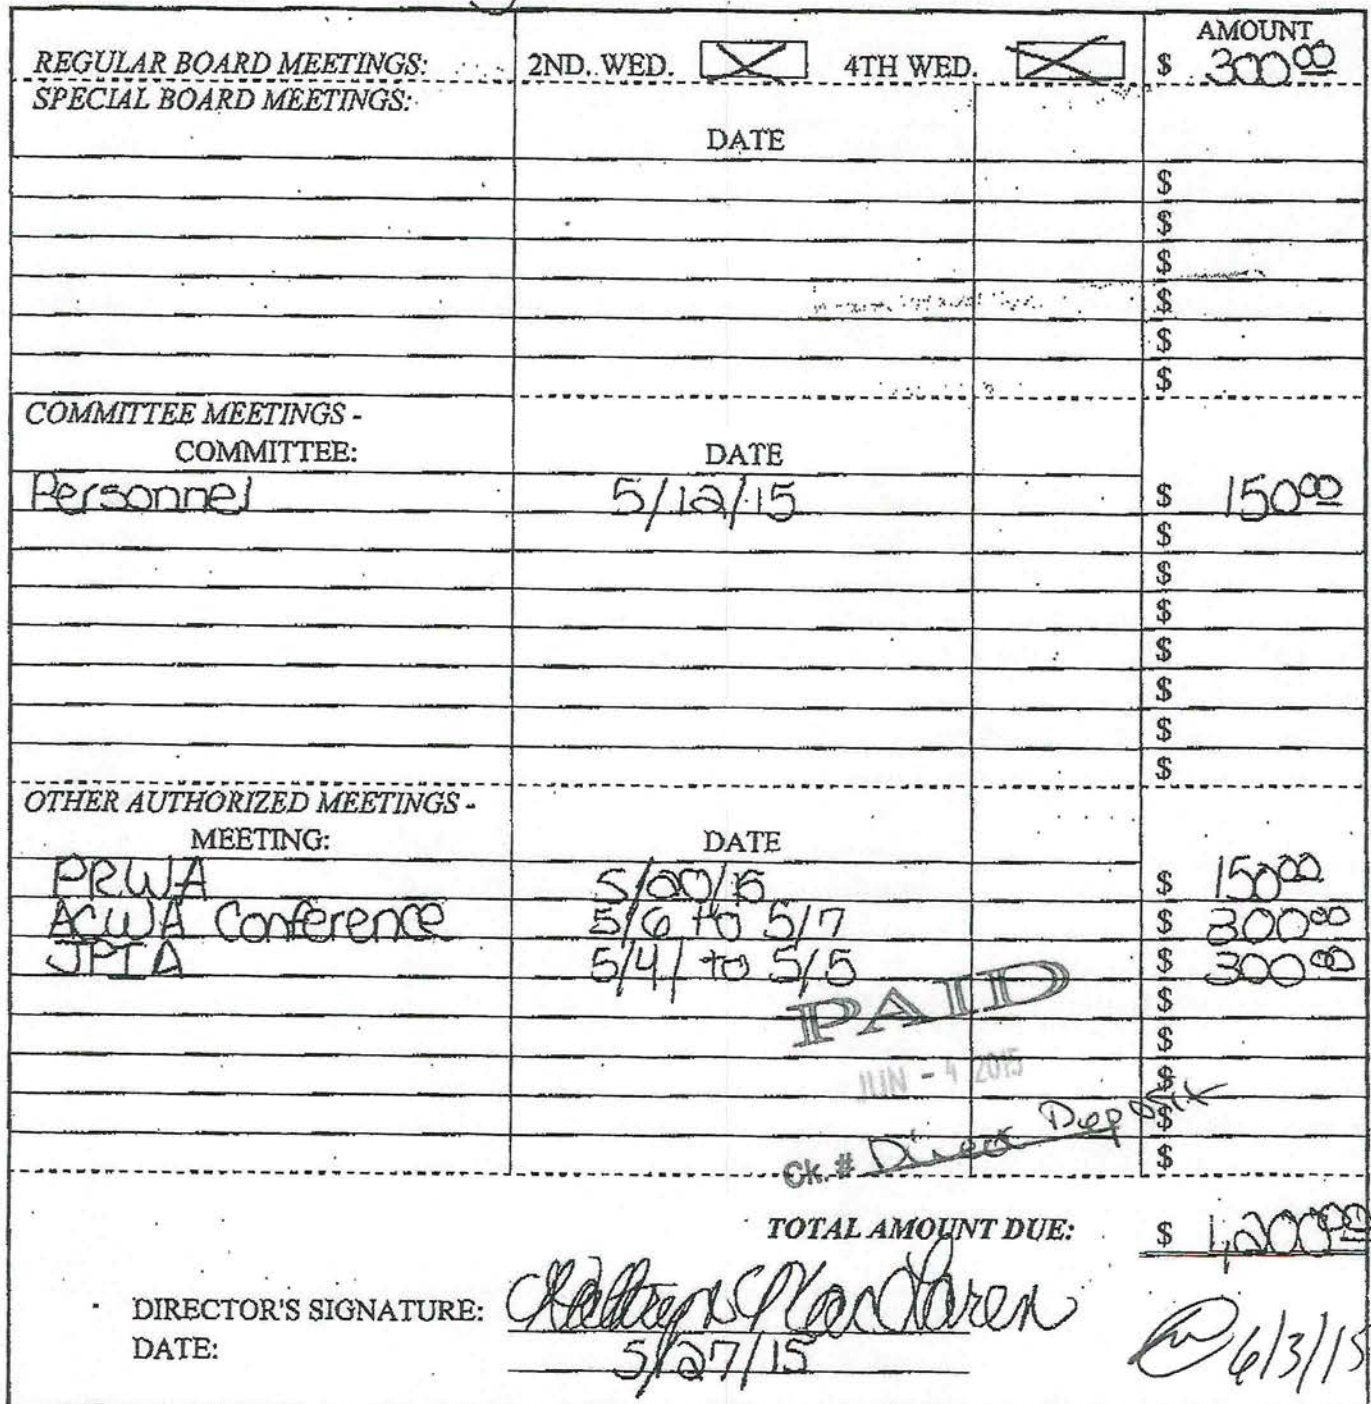 AMOUNT
REGULAR BOARD MEETINGS: 2ND. WED. 4TH WED. $ 300.00
SPECIAL BOARD MEETINGS:
DATE
$
$
$
$
$
$
COMMITTEE MEETINGS -
COMMITTEE: DATE
Personnel 5/12/15 $ 150.00
$
$
$
$
$
$
$
OTHER AUTHORIZED MEETINGS -
MEETING: DATE
PRWA 5/20/15 $ 150.00
ACWA Conference 5/6 to 5/7 $ 300.00
JPIA 5/4/ to 5/5 $ 300.00
PAID
$
$
JUN - 4 2015
$
Ck. # Direct Deposit
$
$
TOTAL AMOUNT DUE: $ 1,200.00
DIRECTOR'S SIGNATURE: Kathryn Mac Laren
DATE: 5/27/15 6/3/15